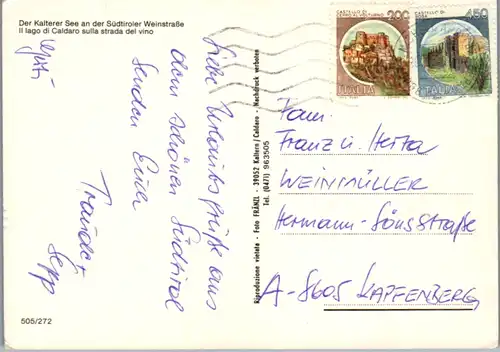 Der Kalterer See an der Südtiroler Weinstraße
Il lago di Caldaro sulla strada del vino
Liebe Urlaubsgrüße aus
dem schönen Südtirol
senden Euch
Traudel
Sepp
505/272
Riproduzione vietata - Foto FRÄNZL - 39052 Kaltern/Caldaro - Nachdruck verboten
Tel. (0471) 963505
CASTELLO DI
CERRO AL VOLTURNO
200
ITALIA
CASTELLO DI
450
ITALIA
Fam.
Franz u. Herta
WEINMÜLLER
Hermann-Lönsstraße
A-8605 KAPFENBERG